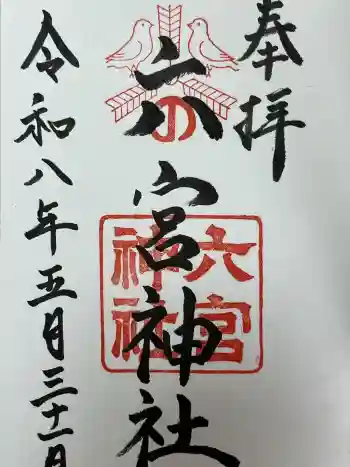 奉拝
六の宮神社
六宮
神社
令和八年五月三十一日